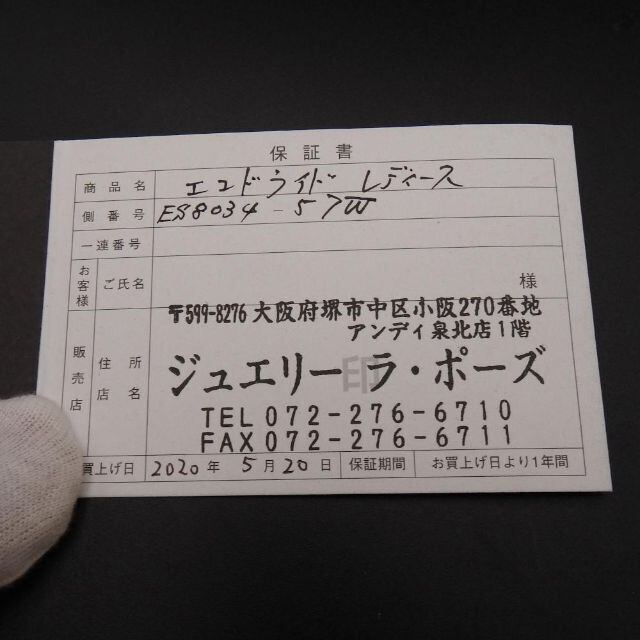 保証書
商品名 エコドライブ レディース
側番号 ES8034-57W
一連番号
お客様 ご氏名 様
〒599-8276 大阪府堺市中区小阪270番地
アンディ泉北店1階
販売店 住所 店名 ジュエリー ラ・ポーズ
印
TEL 072-276-6710
FAX 072-276-6711
買上げ日 2020年 5月20日 保証期間 お買上げ日より1年間